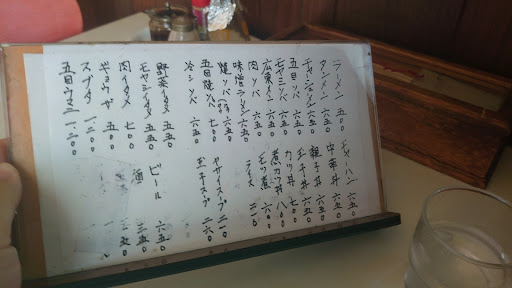 ラーメン 五〇〇
タンメン 六五〇
チャーシューメン 六五〇
五目ソバ 六五〇
モヤシソバ 六五〇
広東メン 六五〇
肉ソバ 六五〇
味噌ラーメン 六五〇
焼ソバ 六五〇
五目焼ソバ 七〇〇
冷シソバ 六五〇
野菜イタメ 五五〇
モヤシイタメ 五五〇
肉イタメ
ギョウザ 五〇〇
スブタ 一、二〇〇
五目ウマニ 一、二〇〇
チャーハン 六五〇
中華丼 六五〇
親子丼 六五〇
玉子丼 六五〇
カツ丼 七〇〇
煮カツ丼 八〇〇
モツ煮
ライス
ヤサイスープ
玉子スープ
ビール 六五〇
酒 三五〇